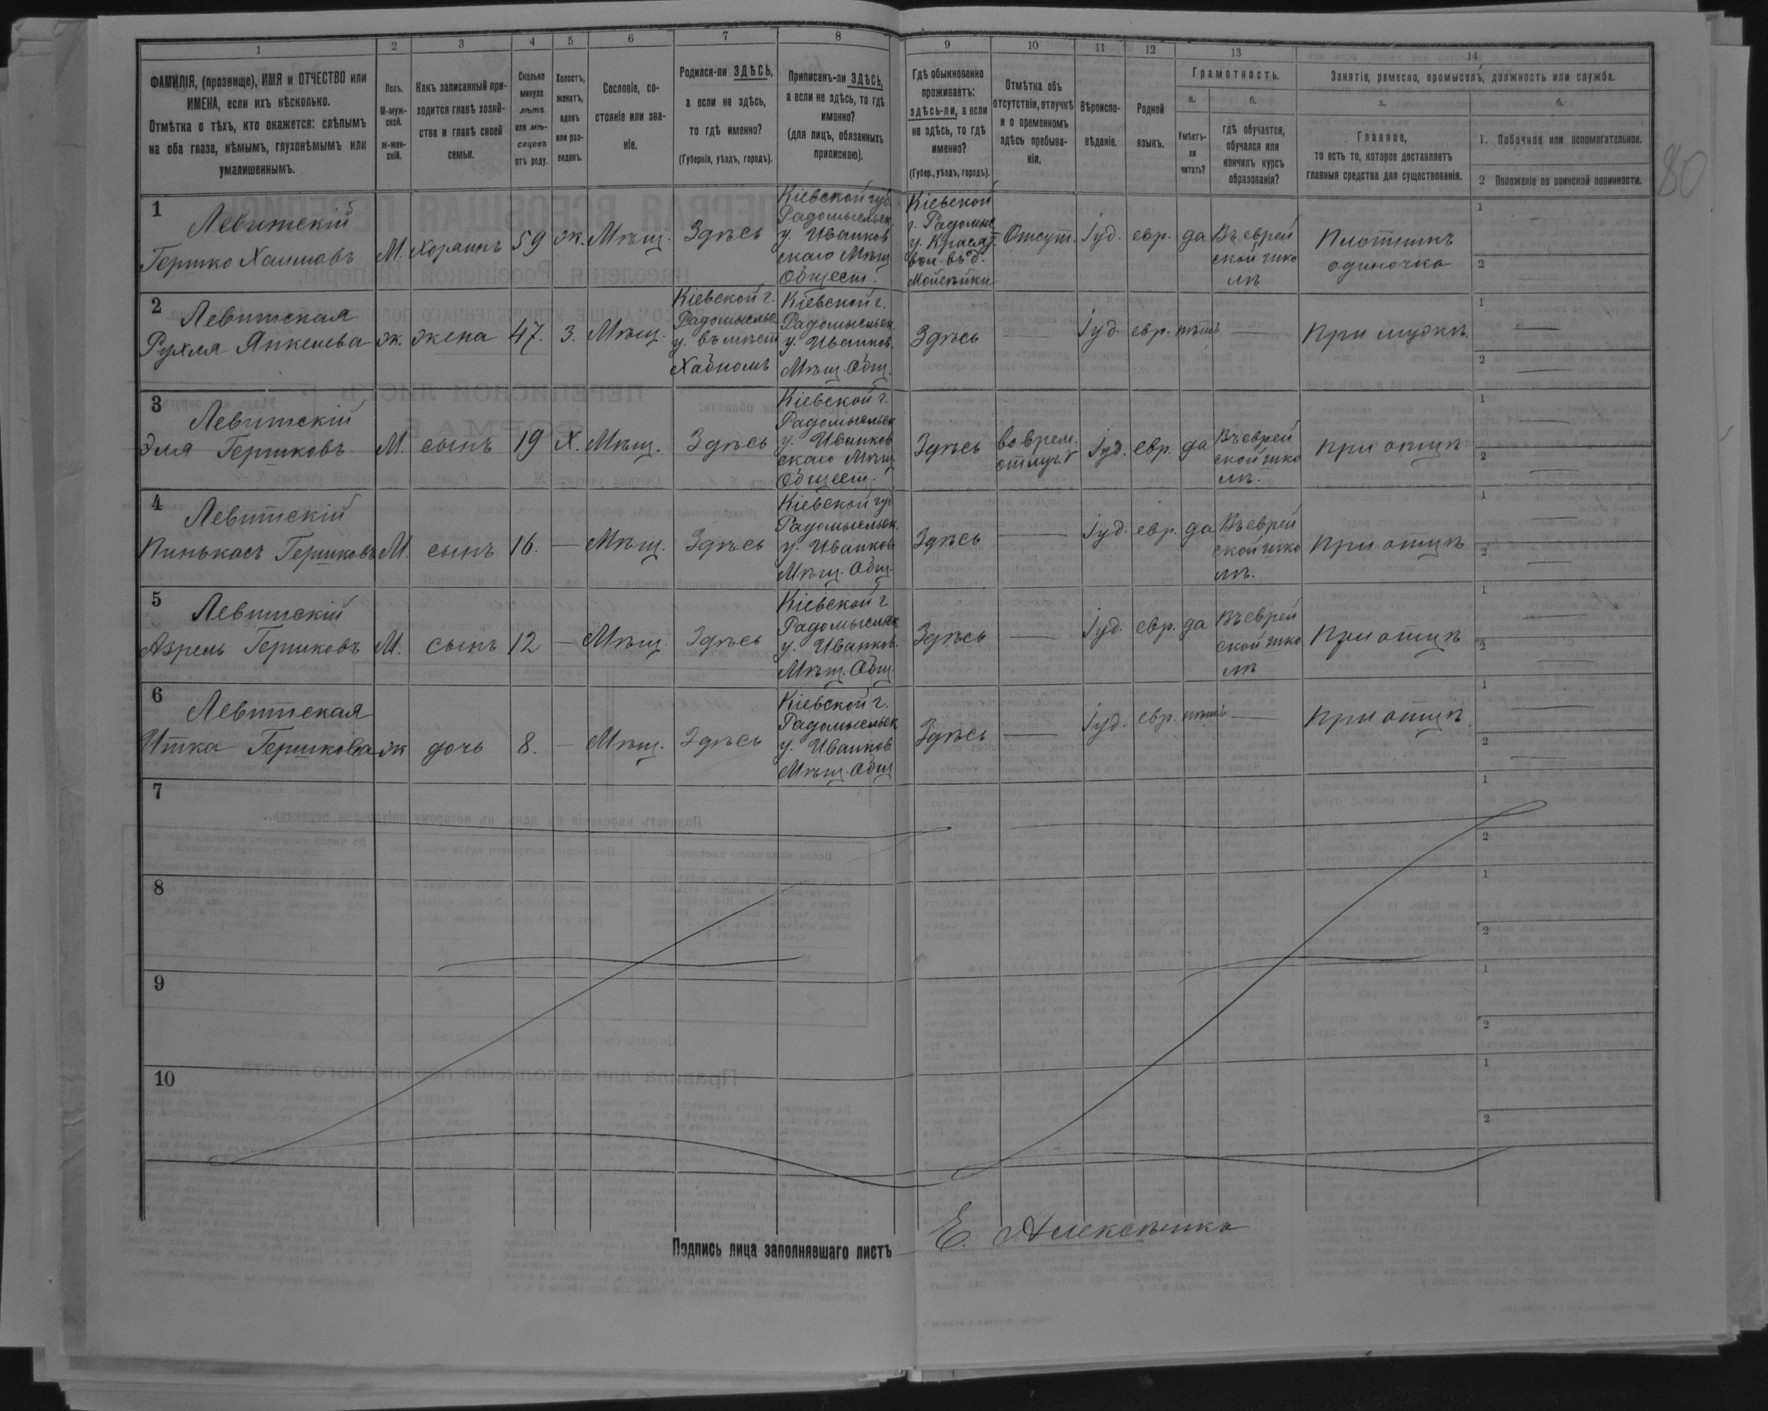 1 2 3 4 5 6 7 8 9 10 11 12 13 14
ФАМИЛІЯ, (прозвище), ИМЯ и ОТЧЕСТВО или
ИМЕНА, если ихъ нѣсколько.
Отмѣтка о тѣхъ, кто окажется: слѣпымъ
на оба глаза, нѣмымъ, глухонѣмымъ или
умалишеннымъ.
Полъ.
М-муж-
ской.
ж-жен-
скій.
Какъ записанный при-
ходится главѣ хозяй-
ства и главѣ своей
семьи.
Сколько
минуло
лѣтъ
или мѣ-
сяцевъ
отъ роду.
Холостъ,
женатъ,
вдовъ
или раз-
веденъ.
Сословіе, со-
стояніе или зва-
ніе.
Родился-ли ЗДѢСЬ,
а если не здѣсь,
то гдѣ именно?
(Губернія, уѣздъ, городъ).
Приписанъ-ли ЗДѢСЬ,
а если не здѣсь, то гдѣ
именно?
(для лицъ, обязанныхъ
припискою).
Гдѣ обыкновенно
проживаетъ:
здѣсь-ли, а если
не здѣсь, то гдѣ
именно?
(Губер., уѣздъ, городъ).
Отмѣтка объ
отсутствіи, отлучкѣ
и о временномъ
здѣсь пребыва-
ніи.
Вѣроиспо-
вѣданіе.
Родной
языкъ.
Грамотность.
а.
Умѣетъ-
ли
читать?
б.
гдѣ обучается,
обучался или
кончилъ курсъ
образованія?
Занятіе, ремесло, промыселъ, должность или служба.
а.
Главное,
то есть то, которое доставляетъ
главныя средства для существованія.
б.
1. Побочное или вспомогательное.
2 Положеніе по воинской повинности.
80
1
Левитскій
Гершко Хаимовъ
М.
хозяинъ
59
ж.
Мѣщ.
Здѣсь
Кіевской губ.
Радомысльск
у. Иванков
скаго Мѣщ
Общест.
Кіевской
г. Радомыс
у.
вол.
Отсут.
Іуд.
евр.
да
Въ еврей
ской шко
лѣ
Плотникъ
одиночка
1
2
2
Левитская
Рухля Янкелева
ж.
жена
47.
З.
Мѣщ.
Кіевской г.
Радомысльс
у. въ мѣст
Хабномъ
Кіевской г.
Радомысльск.
у. Иванков.
Мѣщ. Общ.
Здѣсь
Іуд.
евр.
нѣтъ
При мужѣ.
1
2
3
Левитскій
Эля Гершковъ
М.
сынъ
19
Х.
Мѣщ.
Здѣсь
Кіевской г.
Радомысльск
у. Иванков
скаго Мѣщ
Общест.
Здѣсь
во врем.
отлуч.
Іуд.
евр.
да
Въ еврей
ской шко
лѣ.
При отцѣ
1
2
4
Левитскій
Пинькасъ Гершковъ
М.
сынъ
16.
Мѣщ.
Здѣсь
Кіевской гу.
Радомысльск.
у. Иванков
Мѣщ. Общ.
Здѣсь
Іуд.
евр.
да
Въ еврей
ской шко
лѣ.
При отцѣ
1
2
5
Левитскій
Азрель Гершковъ
М.
сынъ
12
Мѣщ.
Здѣсь
Кіевской г
Радомысльск
у. Иванков.
Мѣщ. Общ
Здѣсь
Іуд.
евр.
да
Въ еврей
ской шко
лѣ
При отцѣ
1
2
6
Левитская
Итка Гершкова
ж
дочь
8.
Мѣщ.
Здѣсь
Кіевской г.
Радомысльск
у. Иванков
Мѣщ. Общ
Здѣсь
Іуд.
евр.
нѣтъ
При отцѣ.
1
2
7
1
2
8
1
2
9
1
2
10
1
2
Подпись лица заполнявшаго листъ
Е. Алексѣенко